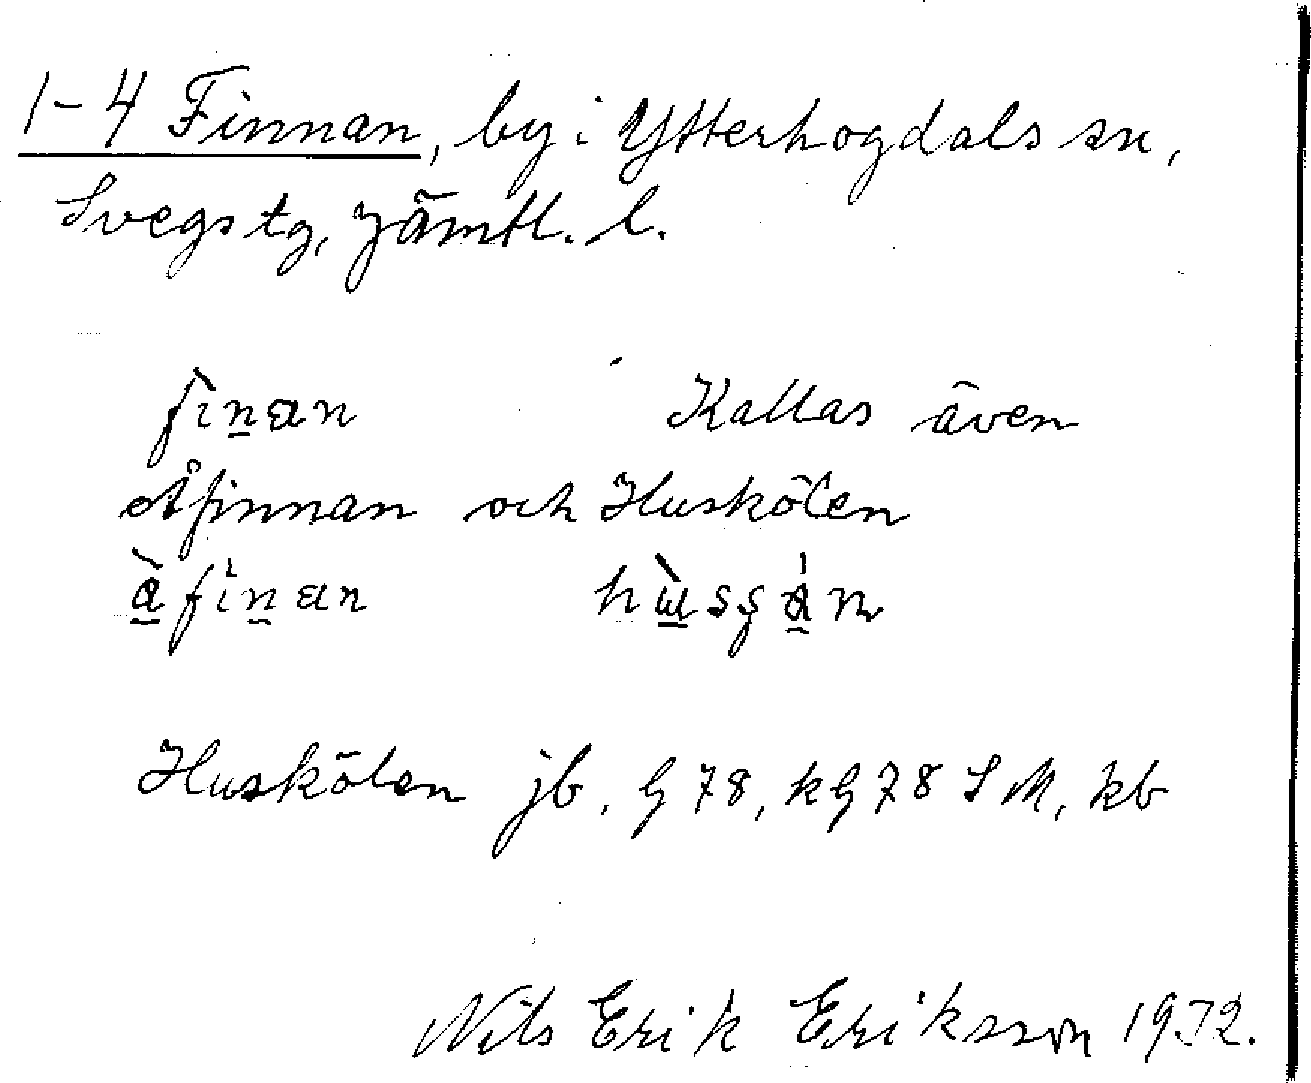 1-4 Finnan, by i Ytterhogdals sn,
Svegs tg, Jämtl. l.
fìnan Kallas även
Åfinnan och Huskölen
à̱fìṉan
Huskölen jb, G 78, kG 78 S M, kb
Nils Erik Eriksson 1932.